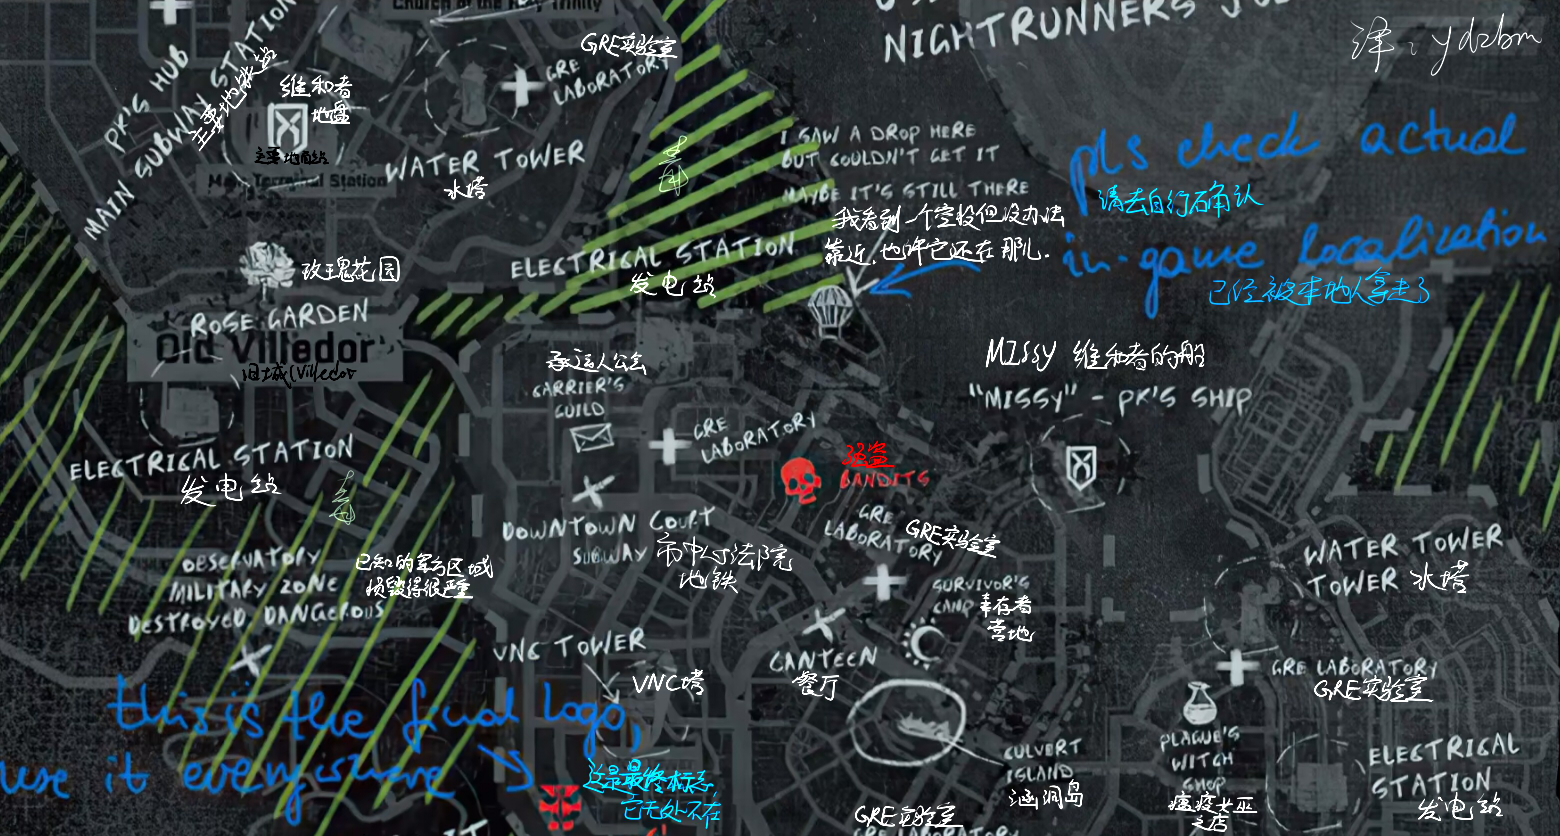 Church of the Holy Trinity
NIGHTRUNNERS
译:ydzbm
PK'S HUB
MAIN SUBWAY STATION
主要地铁站
维和者
地盘
主要地面站
Main Terminal Station
GRE实验室
GRE
LABORATORY
WATER TOWER
水塔
I SAW A DROP HERE
BUT COULDN'T GET IT
MAYBE IT'S STILL THERE
我看到一个空投但没办法
靠近,也许它还在那儿.
pls check actual
请去自行确认
in-game localization
已经被本地人拿走了
ELECTRICAL STATION
发电站
玫瑰花园
ROSE GARDEN
Old Villedor
旧城(Villedor
ELECTRICAL STATION
发电站
承运人公会
CARRIER'S
GUILD
GRE
LABORATORY
强盗
BANDITS
MISSY 维和者的船
"MISSY" - PK'S SHIP
DOWNTOWN COURT
SUBWAY
市中心法院
地铁
GRE
LABORATORY
GRE实验室
OBSERVATORY
MILITARY ZONE
DESTROYED DANGEROUS
已知的军方区域
损毁得很严重
SURVIVOR'S
CAMP
幸存者
营地
WATER TOWER
TOWER 水塔
VNC TOWER
VNC塔
CANTEEN
餐厅
GRE LABORATORY
GRE实验室
this is the final logo,
use it everywhere
这是最终标志,
它无处不在
CULVERT
ISLAND
涵洞岛
PLAGUE'S
WITCH
SHOP
瘟疫女巫
之店
ELECTRICAL
STATION
发电站
GRE实验室
GRE LABORATORY